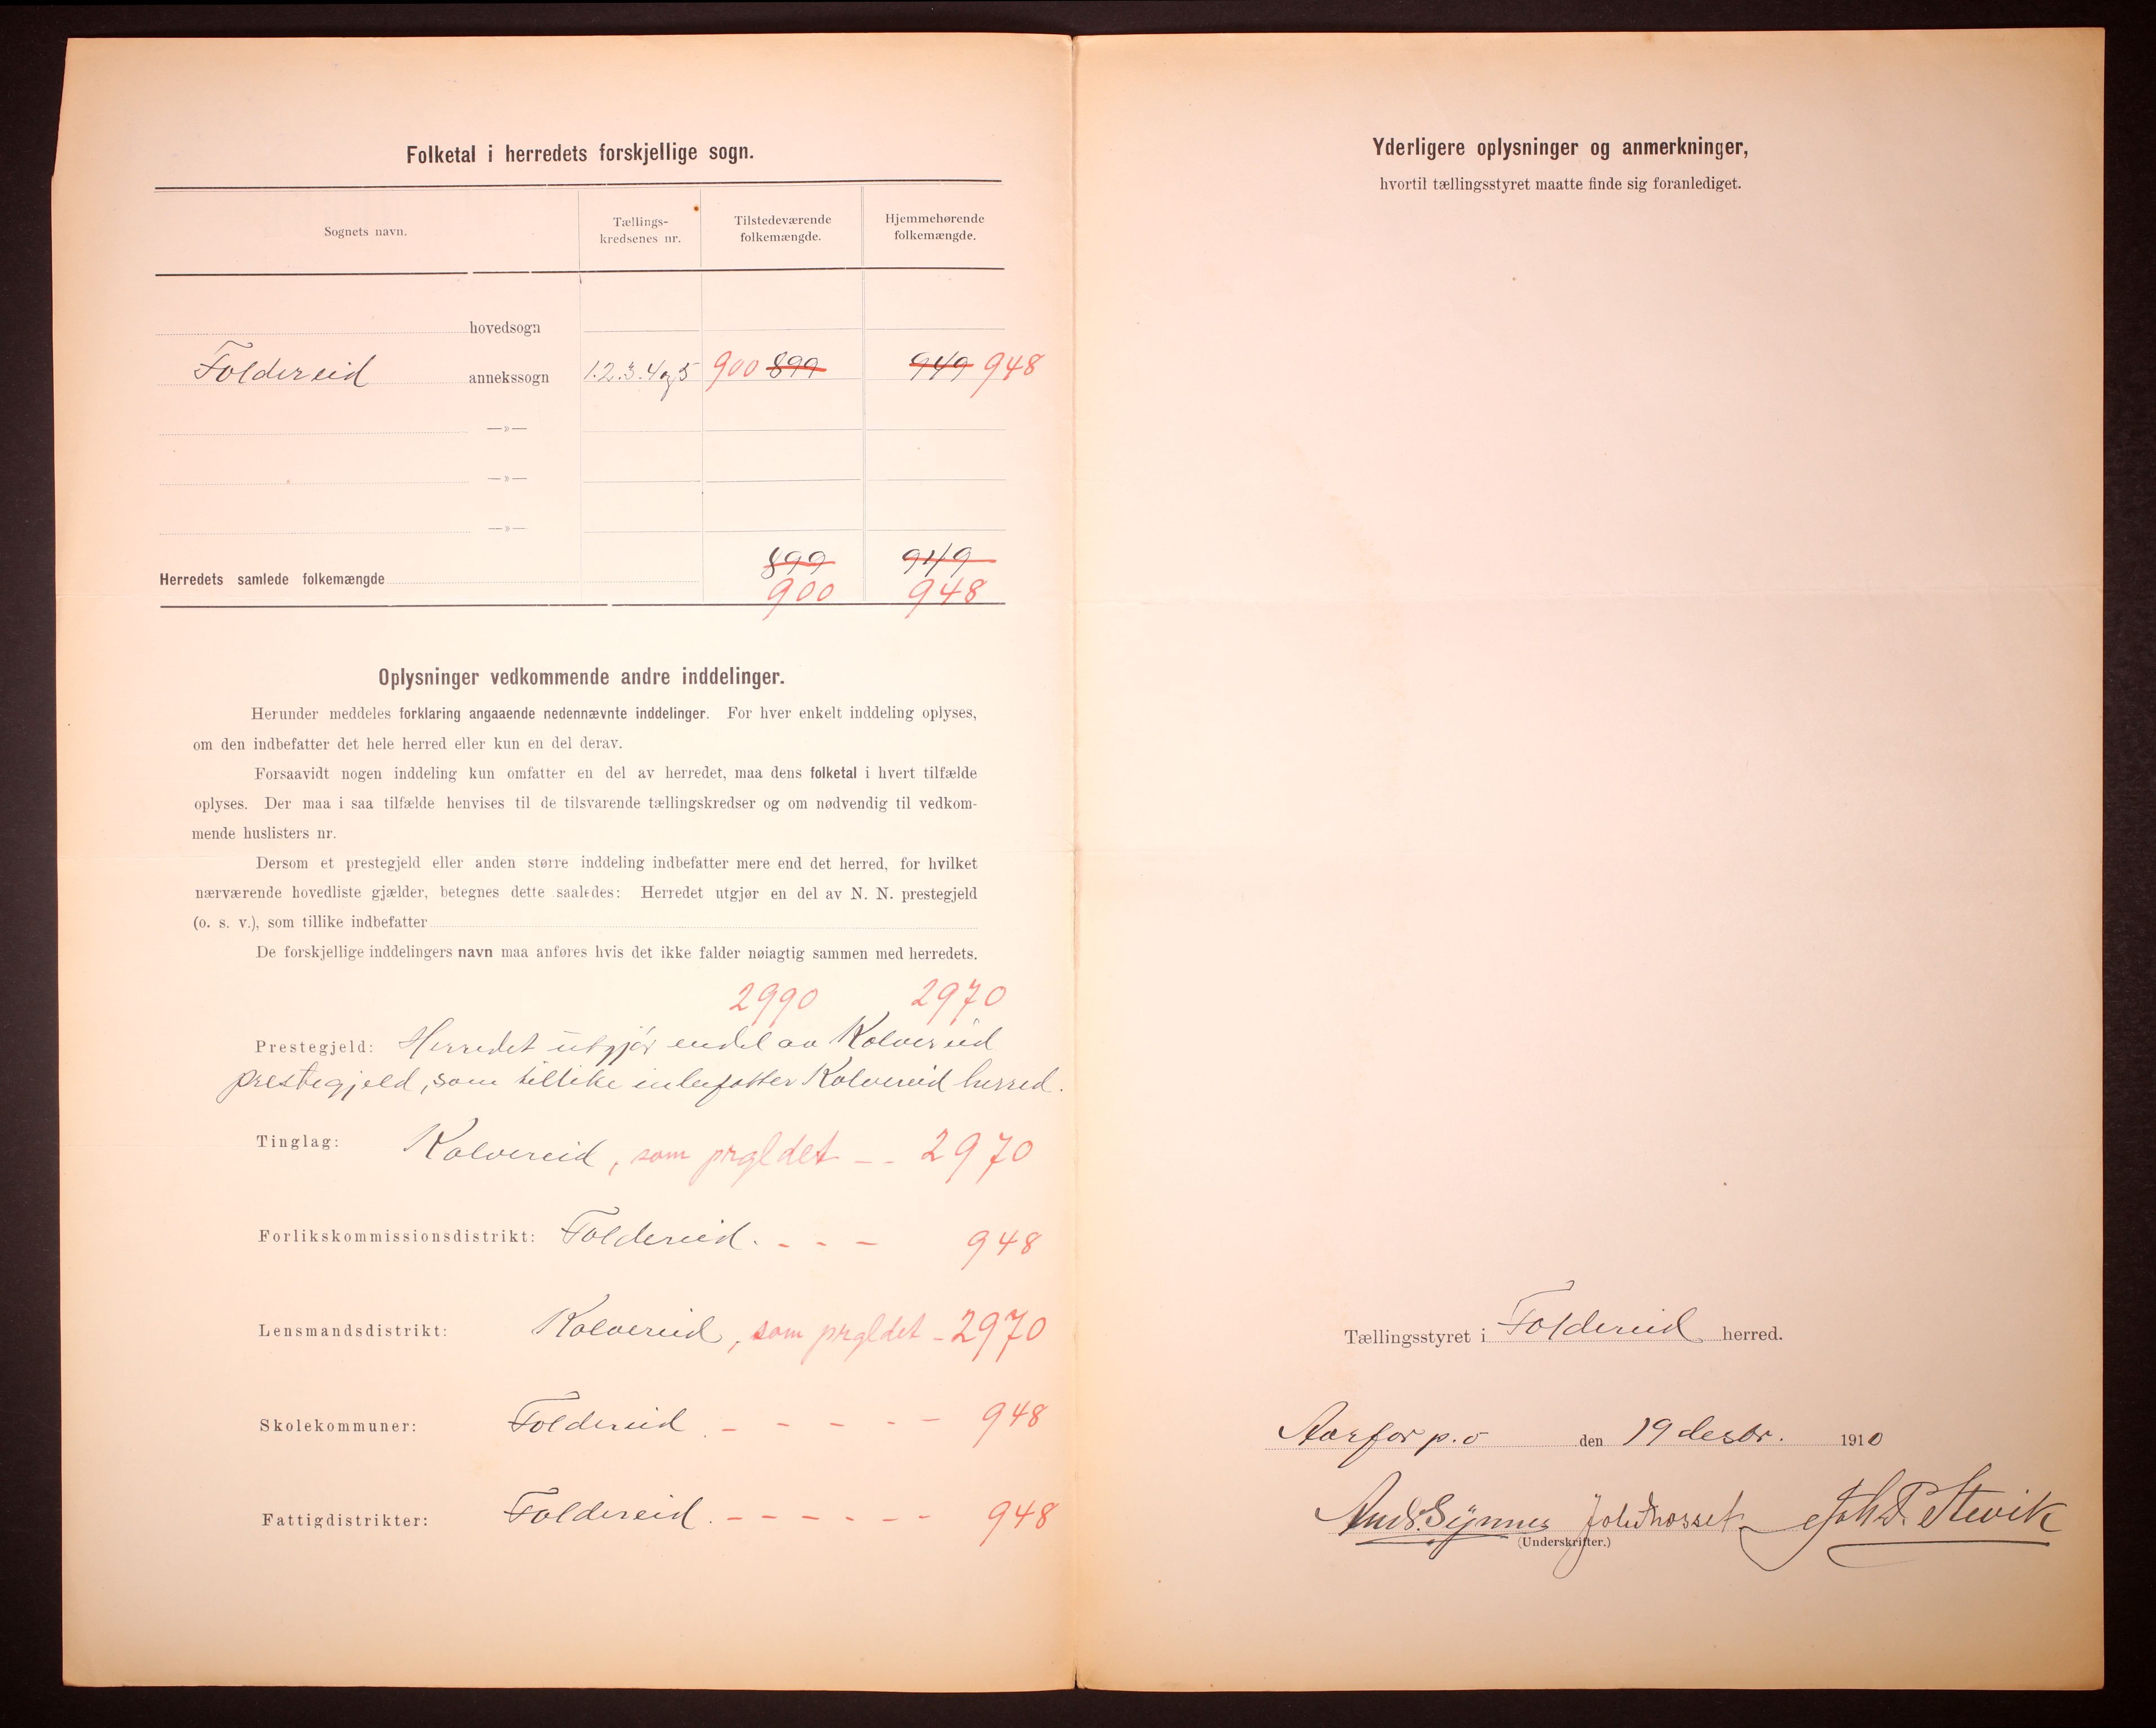 Folketal i herredets forskjellige sogn.
Sognets navn.
Tællings-
kredsenes nr.
Tilstedeværende
folkemængde.
Hjemmehørende
folkemængde.
hovedsogn
Foldereid annekssogn 1.2.3.4 og 5 900 899 949 948
—»—
—»—
—»—
899 949
Herredets samlede folkemængde
900 948
Oplysninger vedkommende andre inddelinger.
Herunder meddeles forklaring angaaende nedennævnte inddelinger. For hver enkelt inddeling oplyses,
om den indbefatter det hele herred eller kun en del derav.
Forsaavidt nogen inddeling kun omfatter en del av herredet, maa dens folketal i hvert tilfælde
oplyses. Der maa i saa tilfælde henvises til de tilsvarende tællingskredser og om nødvendig til vedkom-
mende huslisters nr.
Dersom et prestegjeld eller anden større inddeling indbefatter mere end det herred, for hvilket
nærværende hovedliste gjælder, betegnes dette saaledes: Herredet utgjør en del av N. N. prestegjeld
(o. s. v.), som tillike indbefatter
De forskjellige inddelingers navn maa anføres hvis det ikke falder nøiagtig sammen med herredets.
2990 2970
Prestegjeld: Herredet utgjør endel av Kolvereid
prestegjeld, som tillike inbefatter Kolvereid herred.
Tinglag: Kolvereid, som prgldet - - 2970
Forlikskommissionsdistrikt: Foldereid. - - - 948
Lensmandsdistrikt: Kolvereid, som prgldet - 2970
Skolekommuner: Foldereid. - - - - - 948
Fattigdistrikter: Foldereid. - - - - - - 948
Yderligere oplysninger og anmerkninger,
hvortil tællingsstyret maatte finde sig foranlediget.
Tællingsstyret i Foldereid herred.
Aarfor p.o den 19 desbr. 1910
Andr. Synnes Joh. T. Stevik
(Underskrifter.)